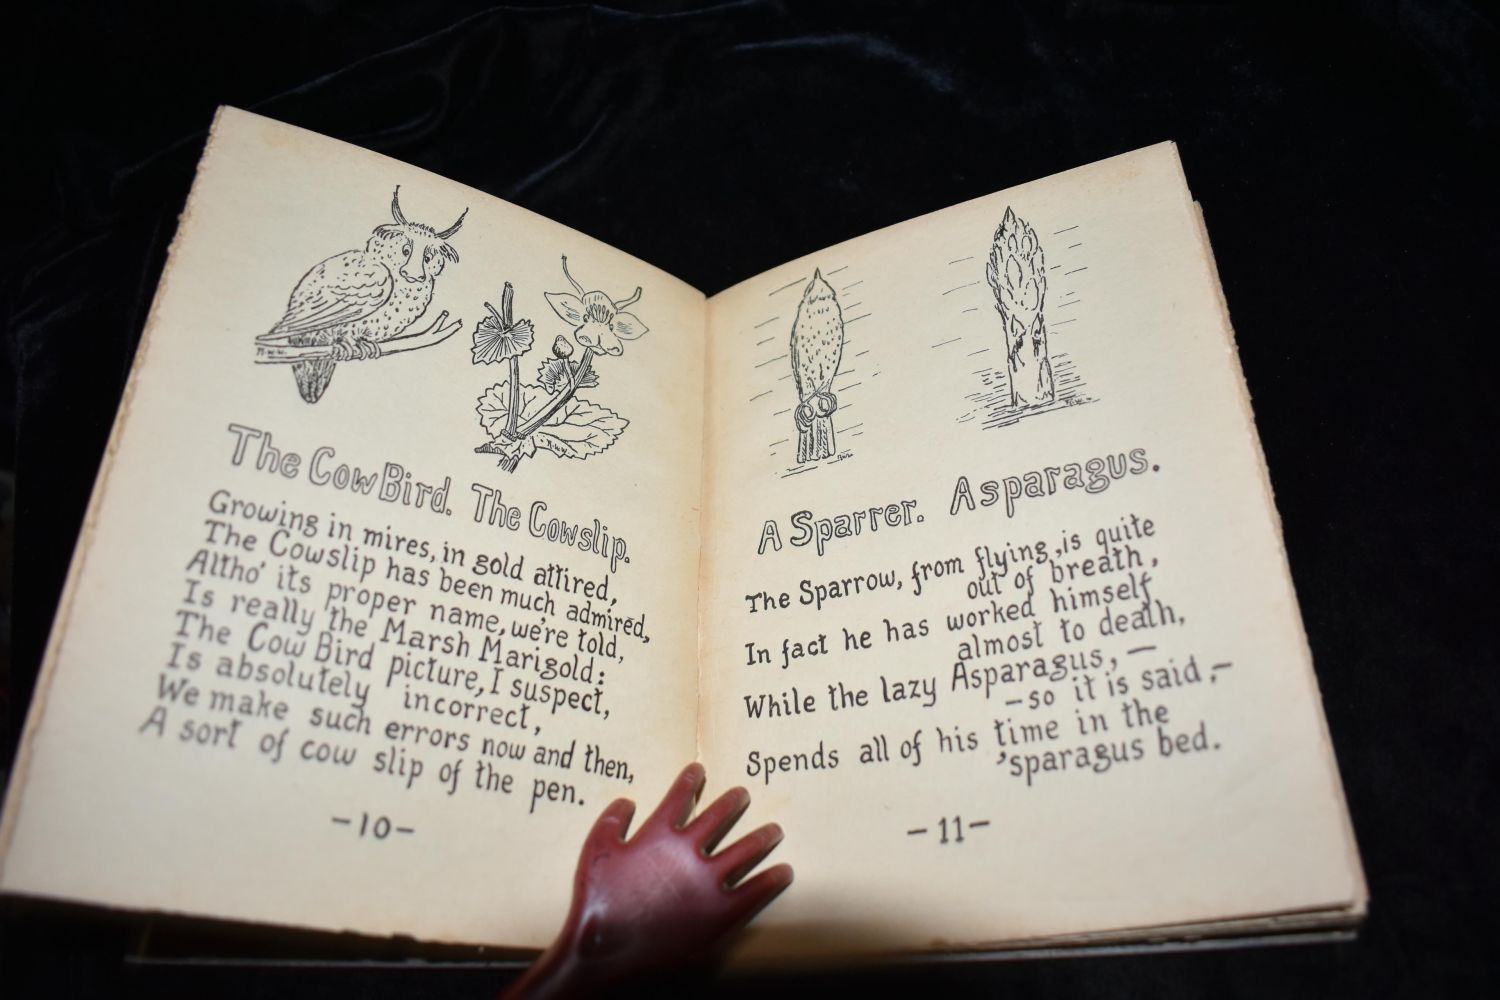 The Cow Bird. The Cowslip.
Growing in mires, in gold attired,
The Cowslip has been much admired,
Altho' its proper name, we're told,
Is really the Marsh Marigold:
The Cow Bird picture, I suspect,
Is absolutely incorrect,
We make such errors now and then,
A sort of cow slip of the pen.
-10-
A Sparrer. Asparagus.
The Sparrow, from flying, is quite
out of breath,
In fact he has worked himself
almost to death,
While the lazy Asparagus, —
— so it is said, —
Spends all of his time in the
'sparagus bed.
-11-